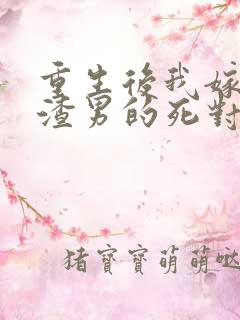 重生後我嫁
渣男的死對
猪寶寶萌萌噠